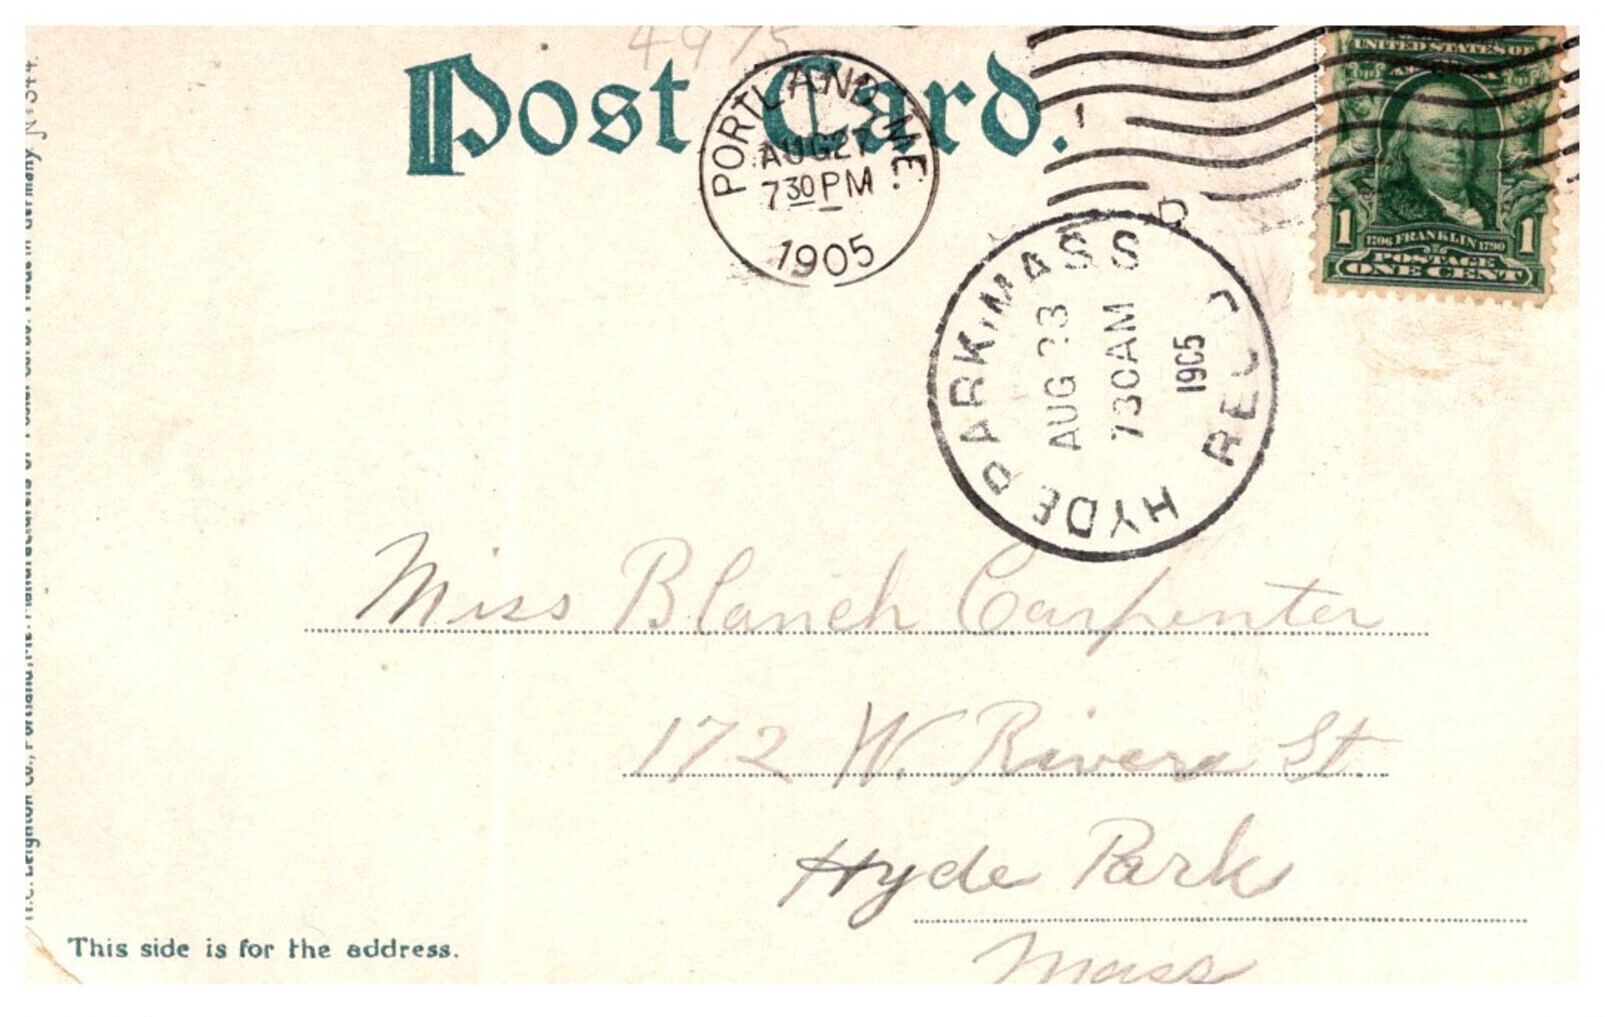 4975
Post Card.
PORTLAND, ME.
AUG 27
7 30 PM
1905
UNITED STATES OF
AMERICA
1 1706 FRANKLIN 1790 1
POSTAGE
ONE CENT
HYDE PARK, MASS
AUG 23
730AM
1905
REC'D
Miss Blanch Carpenter
172 W. Rivers St.
Hyde Park
Mass
This side is for the address.
H.C. Leighton Co., Portland, Me. Manufacturers of Postal Cards. Made in Germany. No 344.